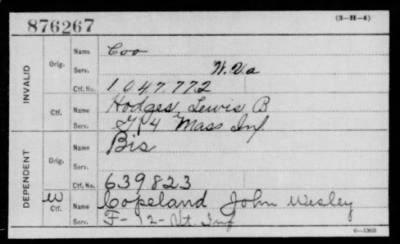 876267 (3-H-4)
INVALID
Orig. Name Coo
Serv. W. Va
Ctf. No. 1047.772
Ctf. Name Hodges, Lewis B
Serv. 4 Mass Inf
DEPENDENT
Orig. Name Bis
Serv.
Ctf. No. 639823
W Ctf. Name Copeland John Wesley
Serv. F-12-Vt. Inf